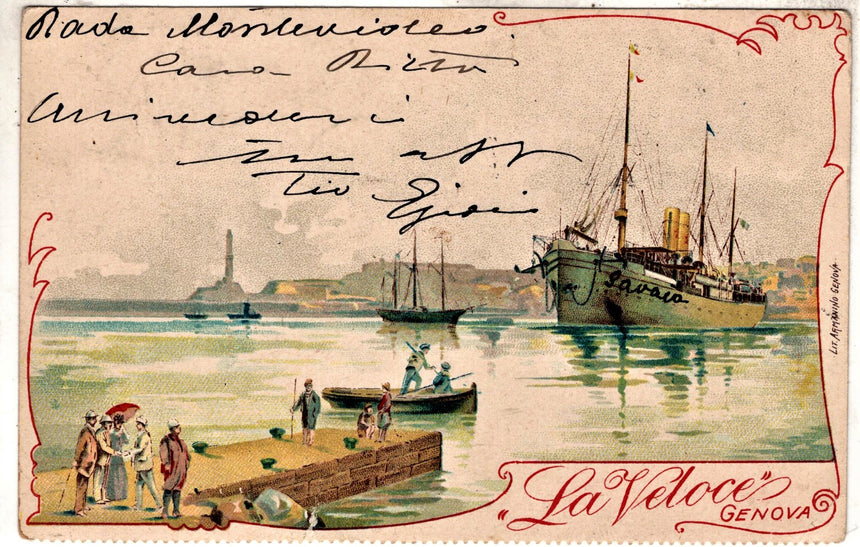 Rada Montevideo.
Cara
Arrivederci
tuo aff
Tio
Savoia
LIT. ARMANINO GENOVA
"La Veloce"
GENOVA